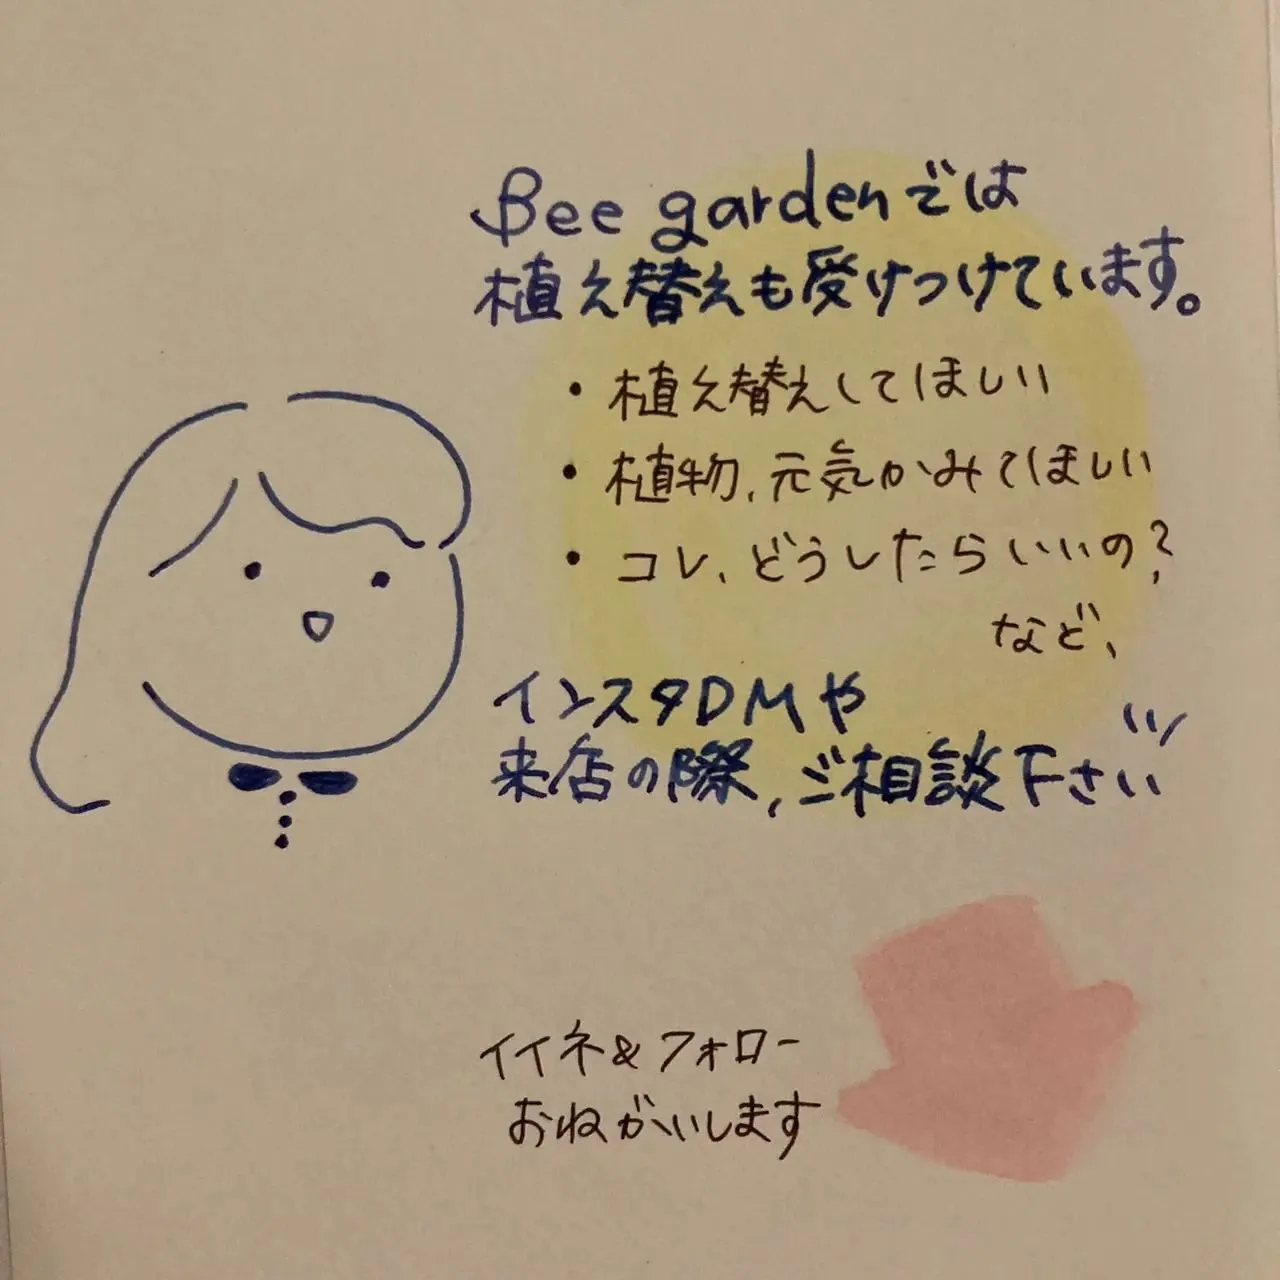 Bee gardenでは
植え替えも受けつけています。
・植え替えしてほしい
・植物、元気かみてほしい
・コレ、どうしたらいいの?
など、
インスタDMや
来店の際、ご相談下さい
イイネ&フォロー
おねがいします